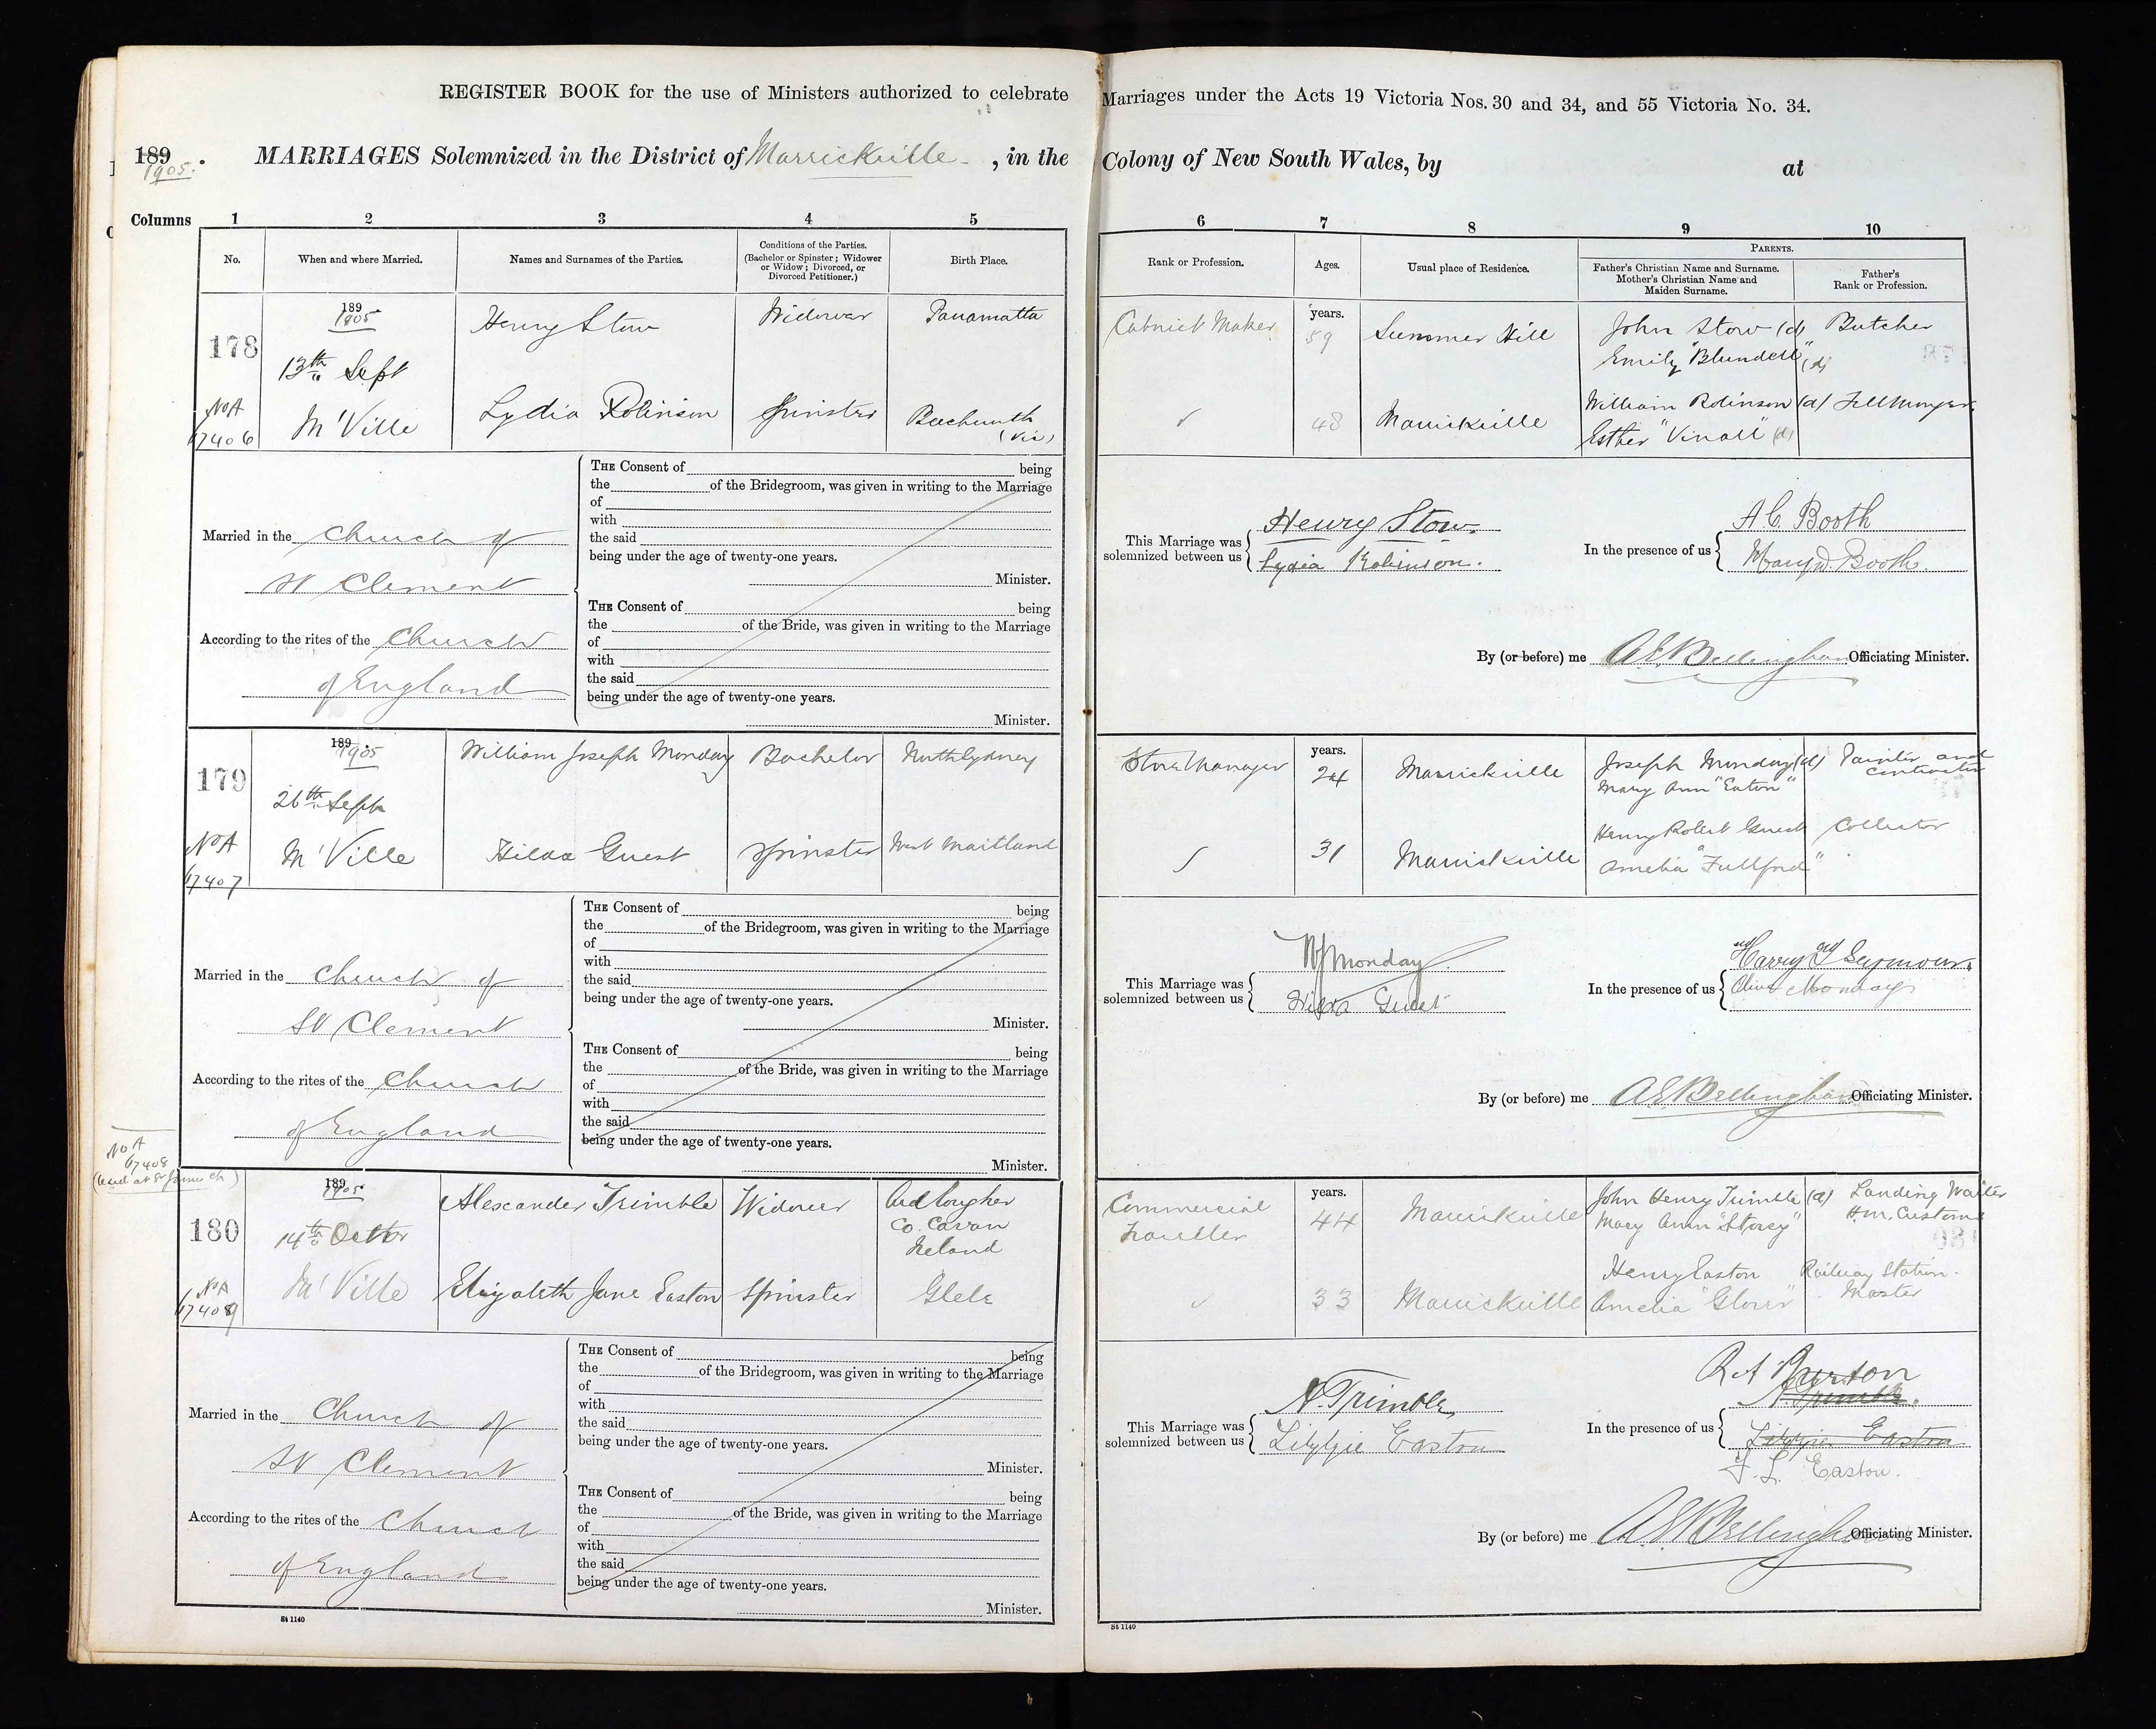 REGISTER BOOK for the use of Ministers authorized to celebrate Marriages under the Acts 19 Victoria Nos. 30 and 34, and 55 Victoria No. 34.
189 .
1905.
MARRIAGES Solemnized in the District of Marrickville , in the Colony of New South Wales, by at
Columns 1 2 3 4 5 6 7 8 9 10
No.
When and where Married.
Names and Surnames of the Parties.
Conditions of the Parties.
(Bachelor or Spinster; Widower
or Widow; Divorced, or
Divorced Petitioner.)
Birth Place.
Rank or Profession.
Ages.
Usual place of Residence.
PARENTS.
Father's Christian Name and Surname.
Mother's Christian Name and
Maiden Surname.
Father's
Rank or Profession.
178
189
1905
13th Sept
M'Ville
No A
17406
Henry Stow
Widower
Parramatta
Cabniet Maker
years.
59
Summer Hill
John Stow (d)
Emily "Blundell" (d)
Butcher
Lydia Robinson
Spinster
Beechworth
(Vic)
48
Marrickville
William Robinson (d)
Esther "Vinall" (d)
Fellmonger
Married in the Church of
St Clement
According to the rites of the Church
of England
THE Consent of being
the of the Bridegroom, was given in writing to the Marriage
of
with
the said
being under the age of twenty-one years.
Minister.
THE Consent of being
the of the Bride, was given in writing to the Marriage
of
with
the said
being under the age of twenty-one years.
Minister.
This Marriage was
solemnized between us
Henry Stow
Lydia Robinson.
In the presence of us
A C. Booth
Mary D. Booth.
By (or before) me A E Bellingham Officiating Minister.
179
189 .
1905
26th Sept
M'Ville
No A
17407
William Joseph Monday
Bachelor
North Sydney
Store Manager
years.
24
Marrickville
Joseph Monday (d)
Mary Ann "Eaton"
Painter and
contractor
Hilda Guest
Spinster
West Maitland
31
Marrickville
Henry Robert Guest
Amelia "Fullford"
Collector
Married in the Church of
St Clement
According to the rites of the Church
of England
THE Consent of being
the of the Bridegroom, was given in writing to the Marriage
of
with
the said
being under the age of twenty-one years.
Minister.
THE Consent of being
the of the Bride, was given in writing to the Marriage
of
with
the said
being under the age of twenty-one years.
Minister.
This Marriage was
solemnized between us
W J Monday.
Hilda Guest
In the presence of us
Harry Seymour.
Olive Monday
By (or before) me A E Bellingham Officiating Minister.
No A
17408
180
189
1905
14th Octbr
M'Ville
No A
17409
Alexander Trimble
Widower
Ardlougher
Co. Cavan
Ireland
Commercial
Traveller
years.
44
Marrickville
John Henry Trimble (d)
Mary Ann "Storey"
Landing Waiter
H.M. Customs
Elizabeth Jane Easton
Spinster
Glebe
33
Marrickville
Henry Easton
Amelia "Glover"
Railway Station
Master
Married in the Church of
St Clement
According to the rites of the Church
of England
THE Consent of being
the of the Bridegroom, was given in writing to the Marriage
of
with
the said
being under the age of twenty-one years.
Minister.
THE Consent of being
the of the Bride, was given in writing to the Marriage
of
with
the said
being under the age of twenty-one years.
Minister.
This Marriage was
solemnized between us
A. Trimble
Lizzie Easton
R A Burton
A. Trimble.
In the presence of us
Lizzie Easton
F. L. Easton.
By (or before) me A. E. Bellingham Officiating Minister.
St 1140
St 1140